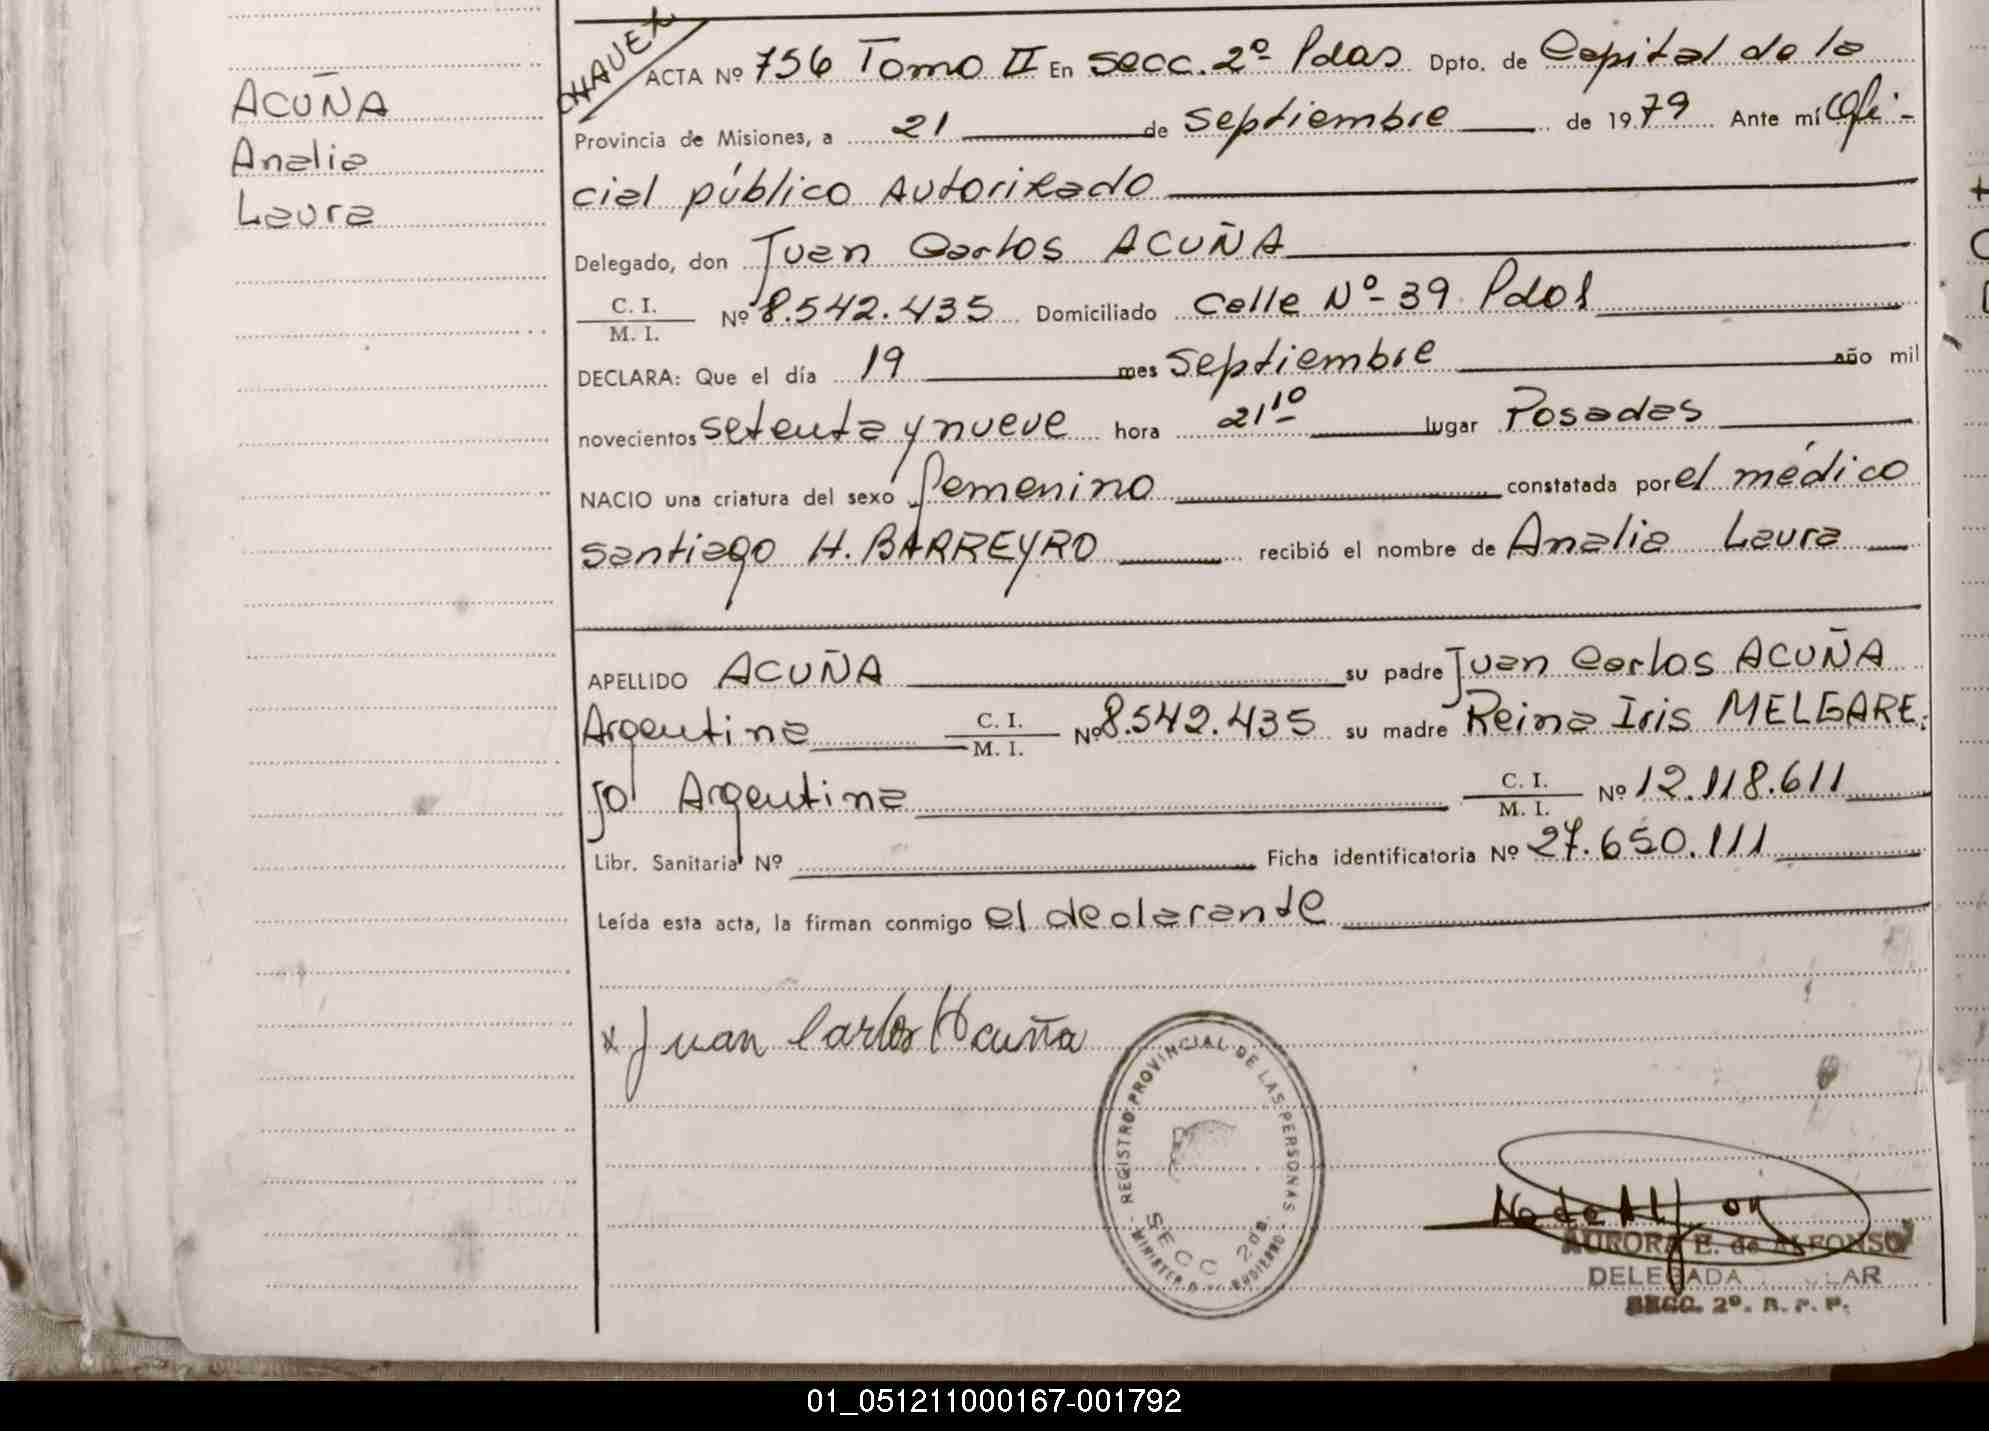 ACUÑA
Analia
Laura
CHAVEZ
ACTA Nº 756 Tomo II En Secc. 2º Pdas Dpto. de Capital de la
Provincia de Misiones, a 21 de Septiembre de 1979 Ante mí Ofi-
cial público Autorizado
Delegado, don Juan Carlos ACUÑA
C. I.
M. I.
Nº 8.542.435 Domiciliado Calle Nº 39 Pdas
DECLARA: Que el día 19 mes Septiembre año mil
novecientos setenta y nueve hora 21 10 lugar Posadas
NACIO una criatura del sexo femenino constatada por el médico
Santiago H. BARREYRO recibió el nombre de Analia Laura
APELLIDO ACUÑA su padre Juan Carlos ACUÑA
Argentina C. I. M. I. Nº 8.542.435 su madre Reina Iris MELGARE-
jo Argentina C. I. M. I. Nº 12.118.611
Libr. Sanitaria Nº Ficha identificatoria Nº 27.650.111
Leída esta acta, la firman conmigo el declarante
x Juan Carlos Acuña
REGISTRO PROVINCIAL DE LAS PERSONAS
SECC 2da.
AURORA E. de ALFONSO
DELEGADA
SECC. 2º. R. P. P.
01_051211000167-001792